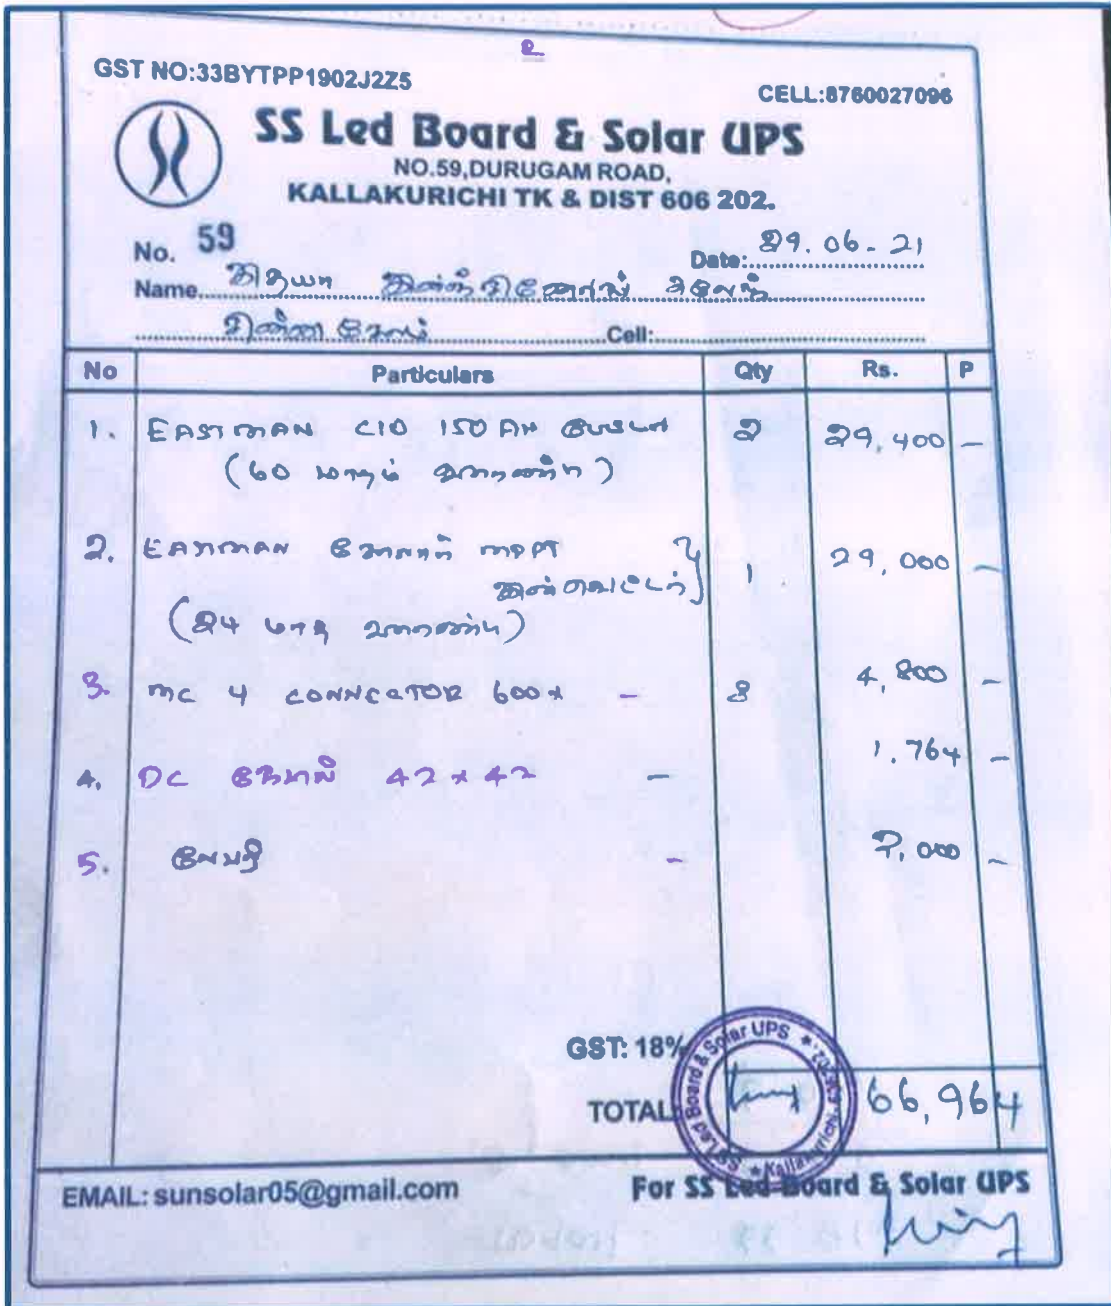 உ
GST NO:33BYTPP1902J2Z5
CELL:8760027096
SS Led Board & Solar UPS
NO.59,DURUGAM ROAD,
KALLAKURICHI TK & DIST 606 202.
No. 59
Date: 29.06-21
Name
சின்ன சேலம் Cell:
No Particulars Qty Rs. P
1. EASTMAN C10 150 AH 2 29,400 -
(60 மாதம் வாரண்டி)
2. EASTMAN சோலார் MPPT
இன்வெட்டர் 1 29,000 -
(24 மாத வாரண்டி)
3. MC 4 CONNCATOR 600 x - 8 4,800 -
4. DC கேபிள் 42 x 42 - 1.764 -
5. லேபர் - 2,000 -
GST: 18%
TOTAL 66,964
SS Led Board & Solar UPS * Kallakurichi - 606202. *
EMAIL: sunsolar05@gmail.com
For SS Led Board & Solar UPS